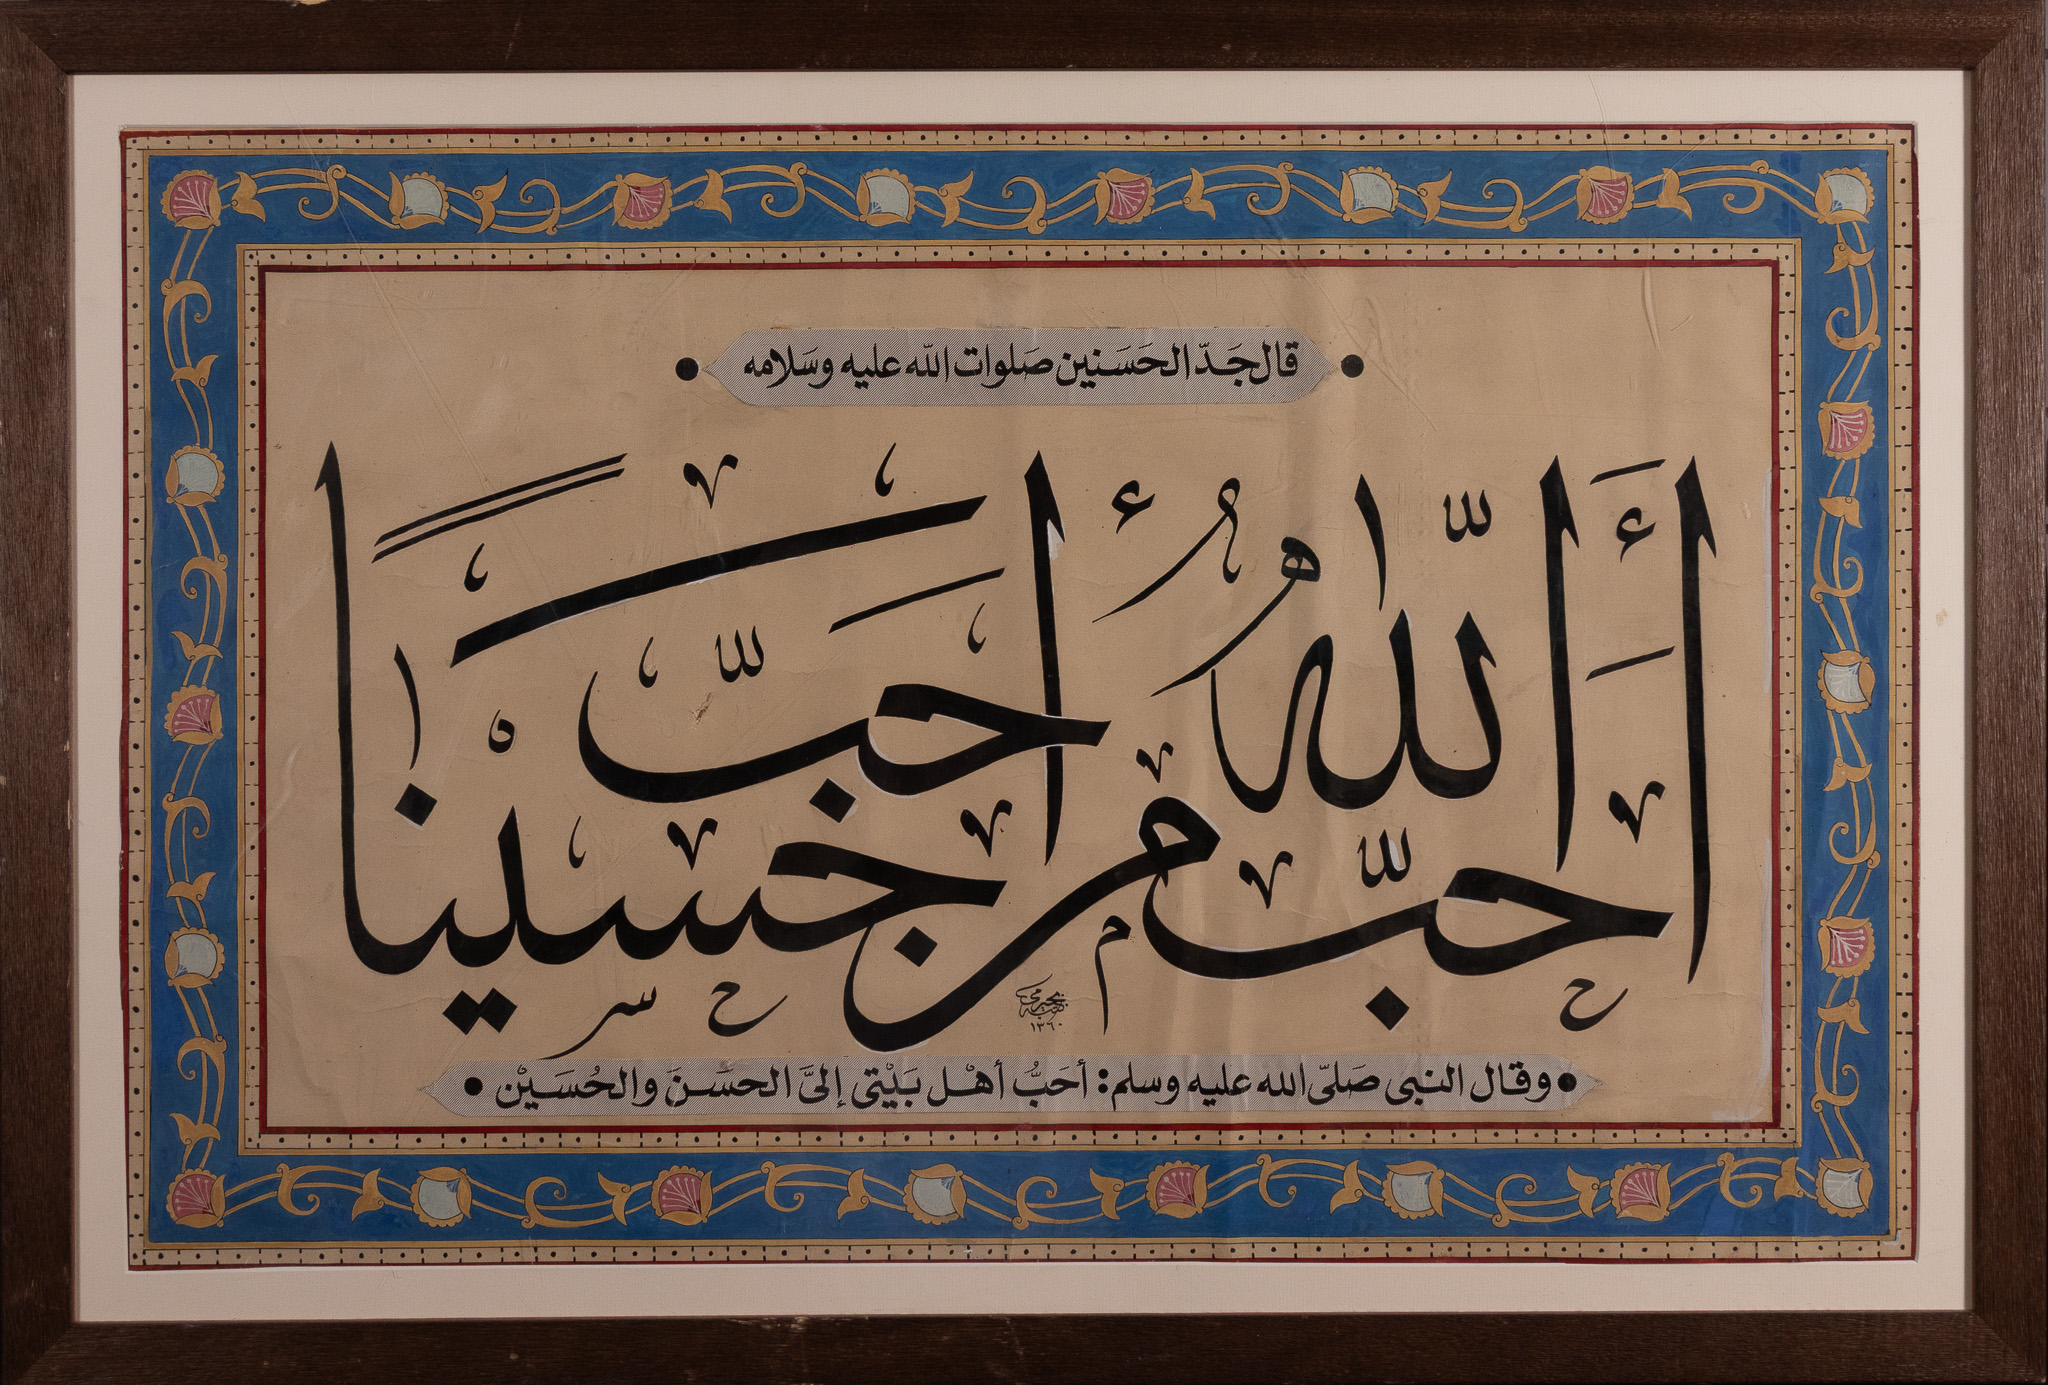 قال جَدّ الحَسَنين صَلوات الله عليه وسَلامه
أَحَبَّ اللهُ من أحبّ حسينًا
١٣٦٠
وقال النبى صَلىّ الله عليه وسلم: أحَبُّ أهْل بَيْتى إلىَّ الحسَنَ والحُسَيْن